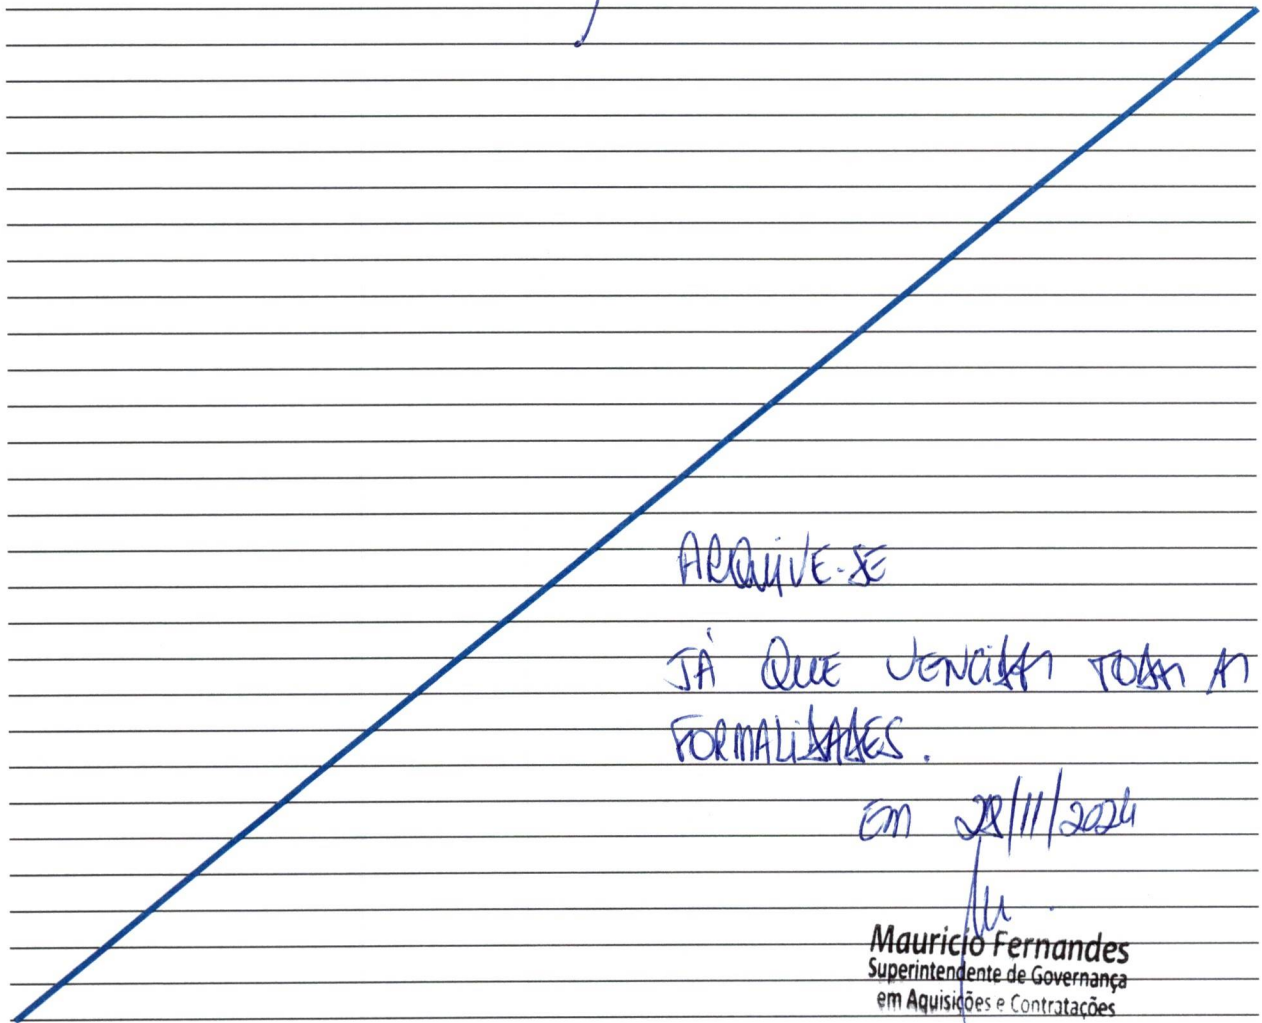 ARQUIVE-SE
JÁ QUE VENCIDAS TODAS AS
FORMALIDADES.
EM 28/11/2024
Mauricio Fernandes
Superintendente de Governança
em Aquisições e Contratações